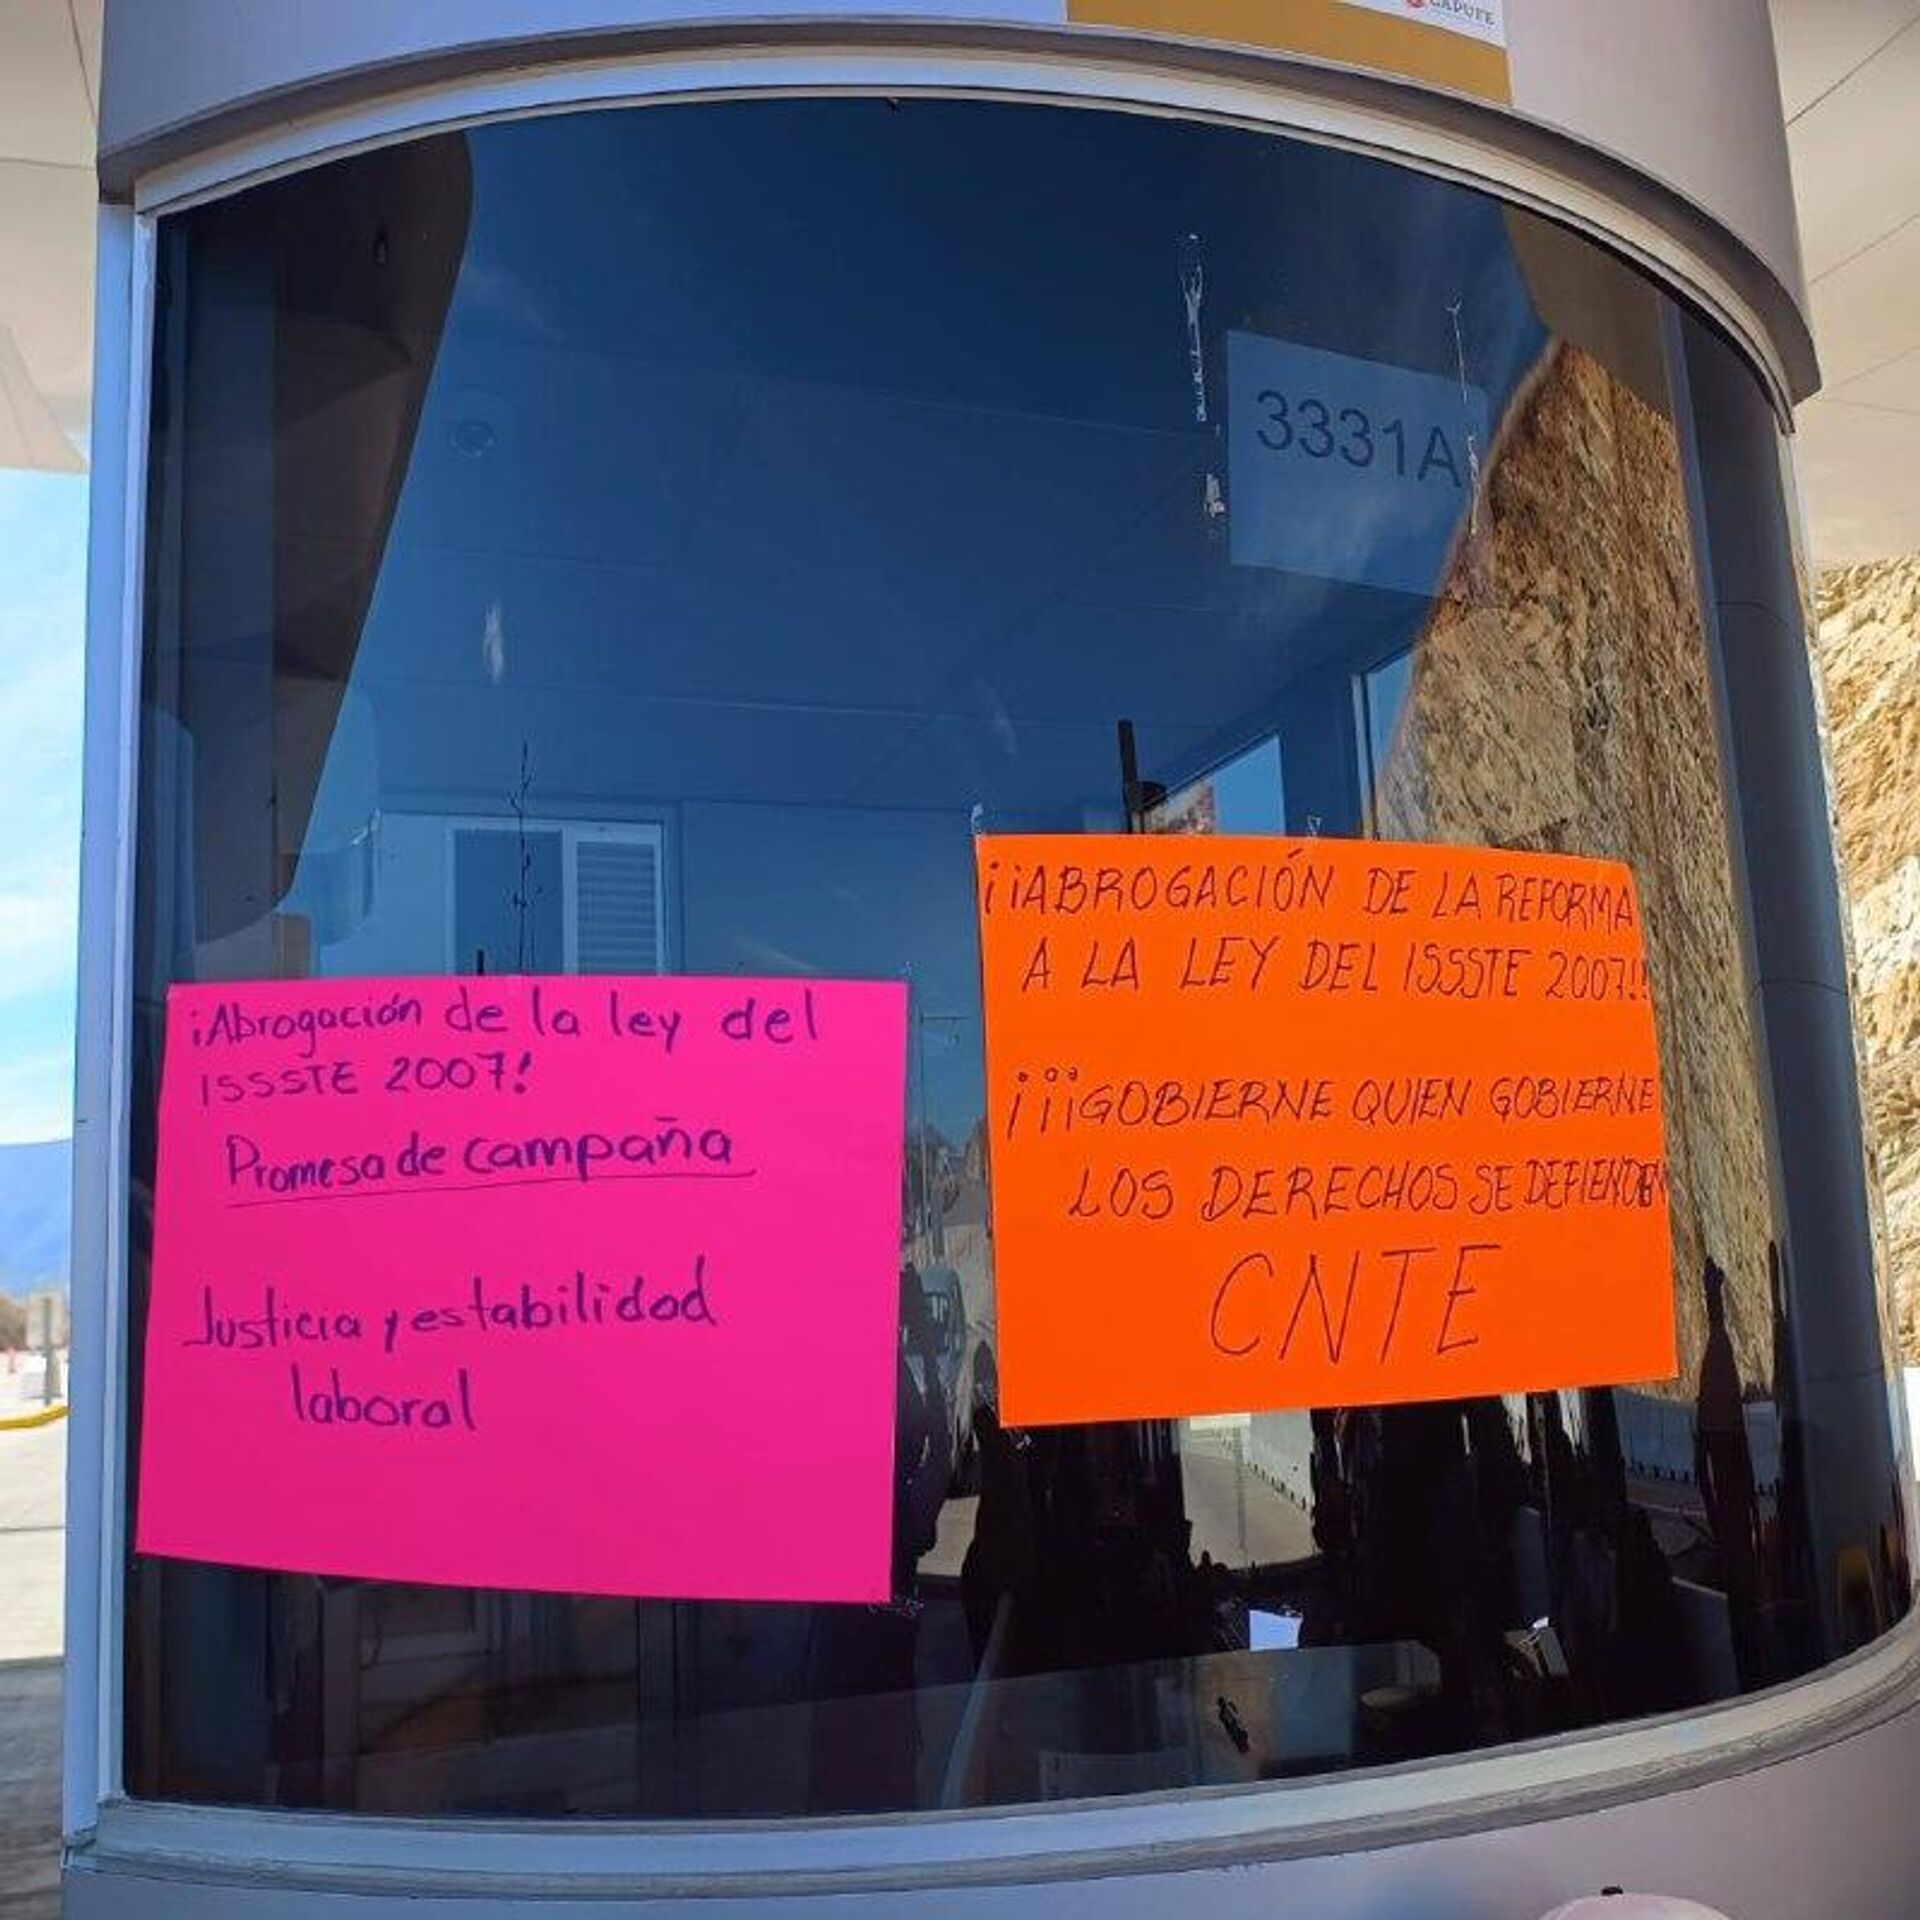 CAPUFE
3331A
¡Abrogación de la ley del
ISSSTE 2007!
Promesa de campaña
Justicia y estabilidad
laboral
¡¡ABROGACIÓN DE LA REFORMA
A LA LEY DEL ISSSTE 2007!!
¡¡¡GOBIERNE QUIEN GOBIERNE
LOS DERECHOS SE DEFIENDEN
CNTE